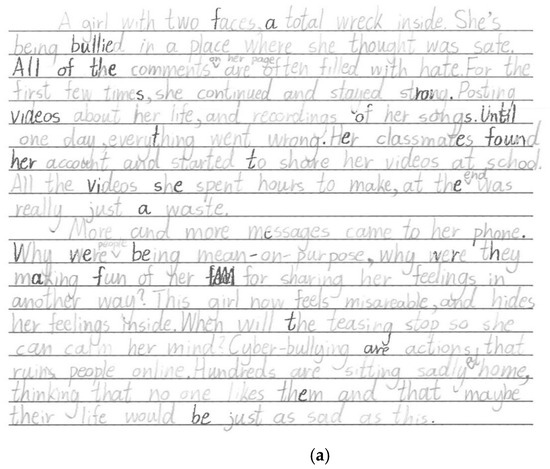 A girl with two faces, a total wreck inside. She's
being bullied in a place where she thought was safe.
All of the comments on her page are often filled with hate. For the
first few times, she continued and stayed strong. Posting
videos about her life, and recordings of her songs. Until
one day, everything went wrong. Her classmates found
her account and started to share her videos at school.
All the videos she spent hours to make, at the end was
really just a waste.
More and more messages came to her phone.
Why were people being mean-on-purpose, why were they
making fun of her for sharing her feelings in
another way? This girl now feels misareable, and hides
her feelings inside. When will the teasing stop so she
can calm her mind? Cyber-bullying are actions that
ruins people online. Hundreds are sitting sadly at home,
thinking that no one likes them and that maybe
their life would be just as sad as this.
(a)